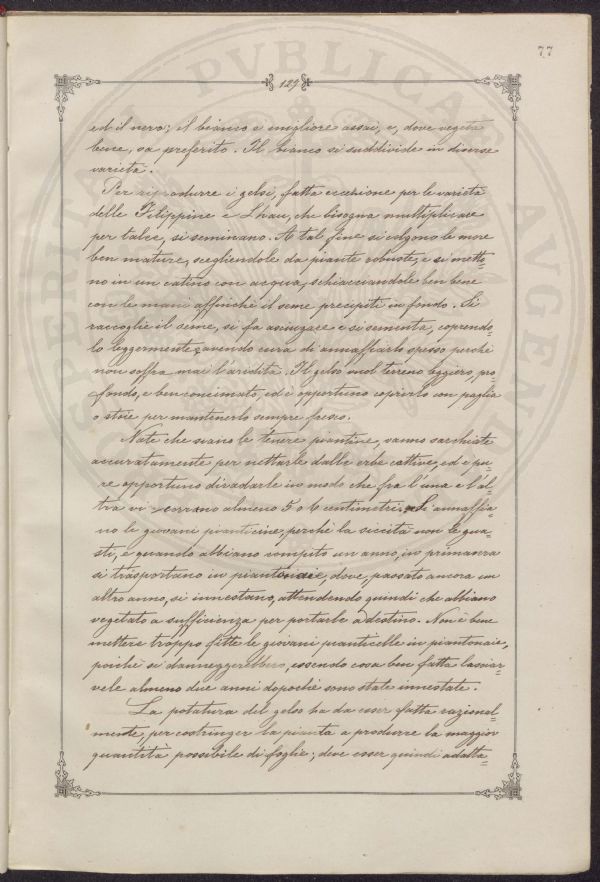 77
129
ed il nero; il bianco è migliore assai, e, dove vegeta
bene, va preferito. Il bianco si suddivide in diverse
varietà.
Per riprodurre i gelsi, fatta eccezione per le varietà
delle Filippine e Lhau, che bisogna multiplicare
per talee, si seminano. A tal fine si colgono le more
ben mature, scegliendole da piante robuste, e si metto=
no in un catino con acqua, schiacciandole ben bene
con le mani affinchè il seme precipiti in fondo. Si
raccoglie il seme, si fa asciugare e si sementa, coprendo=
lo leggermente, avendo cura di annaffiarlo spesso perchè
non soffra mai l'aridità. Il gelso vuol terreno leggiero, pro=
fondo, e ben concimato, ed è opportuno coprirlo con paglia
o stoie per mantenerlo sempre fresco.
Nate che siano le tenere piantine, vanno sarchiate
accuratamente per nettarle dalle erbe cattive, ed è pu=
re opportuno diradarle in modo che fra l'una e l'al=
tra vi corrano almeno 5 o 6 centimetri. Si annaffia=
no le giovani pianticine, perchè la siccità non le gua=
sti, e quando abbiano compito un anno, in primavera
si trasportano in piantonaie, dove, passato ancora un
altro anno, si innestano, attendendo quindi che abbiano
vegetato a sufficienza per portarle a destino. Non è bene
mettere troppo fitte le giovani pianticelle in piantonaie,
poichè si danneggerebbero, essendo cosa ben fatta lasciar=
vele almeno due anni dopochè sono state innestate.
La potatura del gelso ha da esser fatta razional=
mente, per costringer la pianta a produrre la maggior
quantità possibile di foglie; deve esser quindi adatta=
PVBLICAE
AVGENDO